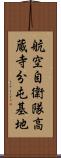 航空自衛隊高
蔵寺分屯基地